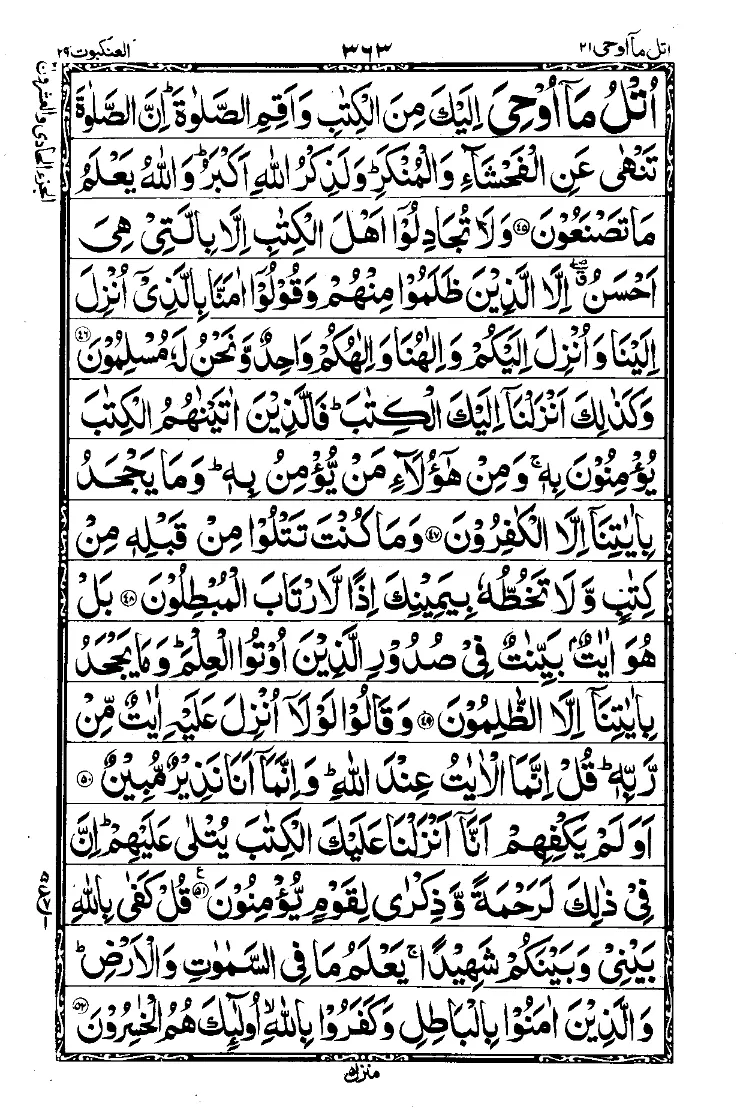 اتل مآ اوحی ۲۱
۳۶۳
العنکبوت ۲۹
اُتْلُ مَاۤ اُوْحِیَ اِلَیْكَ مِنَ الْكِتٰبِ وَاَقِمِ الصَّلٰوةَ ؕ اِنَّ الصَّلٰوةَ
تَنْهٰی عَنِ الْفَحْشَآءِ وَالْمُنْكَرِ ؕ وَلَذِكْرُ اللّٰهِ اَكْبَرُ ؕ وَاللّٰهُ یَعْلَمُ
مَا تَصْنَعُوْنَ ﴿۴۵﴾ وَلَا تُجَادِلُوْۤا اَهْلَ الْكِتٰبِ اِلَّا بِالَّتِیْ هِیَ
اَحْسَنُ ۖۗ اِلَّا الَّذِیْنَ ظَلَمُوْا مِنْهُمْ وَقُوْلُوْۤا اٰمَنَّا بِالَّذِیْۤ اُنْزِلَ
اِلَیْنَا وَاُنْزِلَ اِلَیْكُمْ وَاِلٰهُنَا وَاِلٰهُكُمْ وَاحِدٌ وَّنَحْنُ لَهٗ مُسْلِمُوْنَ ﴿۴۶﴾
وَكَذٰلِكَ اَنْزَلْنَاۤ اِلَیْكَ الْكِتٰبَ ؕ فَالَّذِیْنَ اٰتَیْنٰهُمُ الْكِتٰبَ
یُؤْمِنُوْنَ بِهٖ ۚ وَمِنْ هٰۤؤُلَآءِ مَنْ یُّؤْمِنُ بِهٖ ؕ وَمَا یَجْحَدُ
بِاٰیٰتِنَاۤ اِلَّا الْكٰفِرُوْنَ ﴿۴۷﴾ وَمَا كُنْتَ تَتْلُوْا مِنْ قَبْلِهٖ مِنْ
كِتٰبٍ وَّلَا تَخُطُّهٗ بِیَمِیْنِكَ اِذًا لَّارْتَابَ الْمُبْطِلُوْنَ ﴿۴۸﴾ بَلْ
هُوَ اٰیٰتٌۢ بَیِّنٰتٌ فِیْ صُدُوْرِ الَّذِیْنَ اُوْتُوا الْعِلْمَ ؕ وَمَا یَجْحَدُ
بِاٰیٰتِنَاۤ اِلَّا الظّٰلِمُوْنَ ﴿۴۹﴾ وَقَالُوْا لَوْلَاۤ اُنْزِلَ عَلَیْهِ اٰیٰتٌ مِّنْ
رَّبِّهٖ ؕ قُلْ اِنَّمَا الْاٰیٰتُ عِنْدَ اللّٰهِ ؕ وَاِنَّمَاۤ اَنَا نَذِیْرٌ مُّبِیْنٌ ﴿۵۰﴾
اَوَلَمْ یَكْفِهِمْ اَنَّاۤ اَنْزَلْنَا عَلَیْكَ الْكِتٰبَ یُتْلٰی عَلَیْهِمْ ؕ اِنَّ
فِیْ ذٰلِكَ لَرَحْمَةً وَّذِكْرٰی لِقَوْمٍ یُّؤْمِنُوْنَ ﴿۵۱﴾ ع قُلْ كَفٰی بِاللّٰهِ
بَیْنِیْ وَبَیْنَكُمْ شَهِیْدًا ۚ یَعْلَمُ مَا فِی السَّمٰوٰتِ وَالْاَرْضِ ؕ
وَالَّذِیْنَ اٰمَنُوْا بِالْبَاطِلِ وَكَفَرُوْا بِاللّٰهِ ۙ اُولٰٓئِكَ هُمُ الْخٰسِرُوْنَ ﴿۵۲﴾
الجزء الحادی والعشرون
منزل ۵